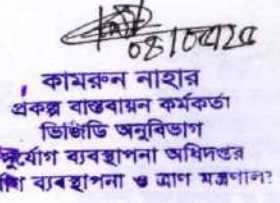 08/04/24
কামরুন নাহার
প্রকল্প বাস্তবায়ন কর্মকর্তা
ভিজিডি অনুবিভাগ
দুর্যোগ ব্যবস্থাপনা অধিদপ্তর
ব্যবস্থাপনা ও ত্রাণ মন্ত্রণালয়